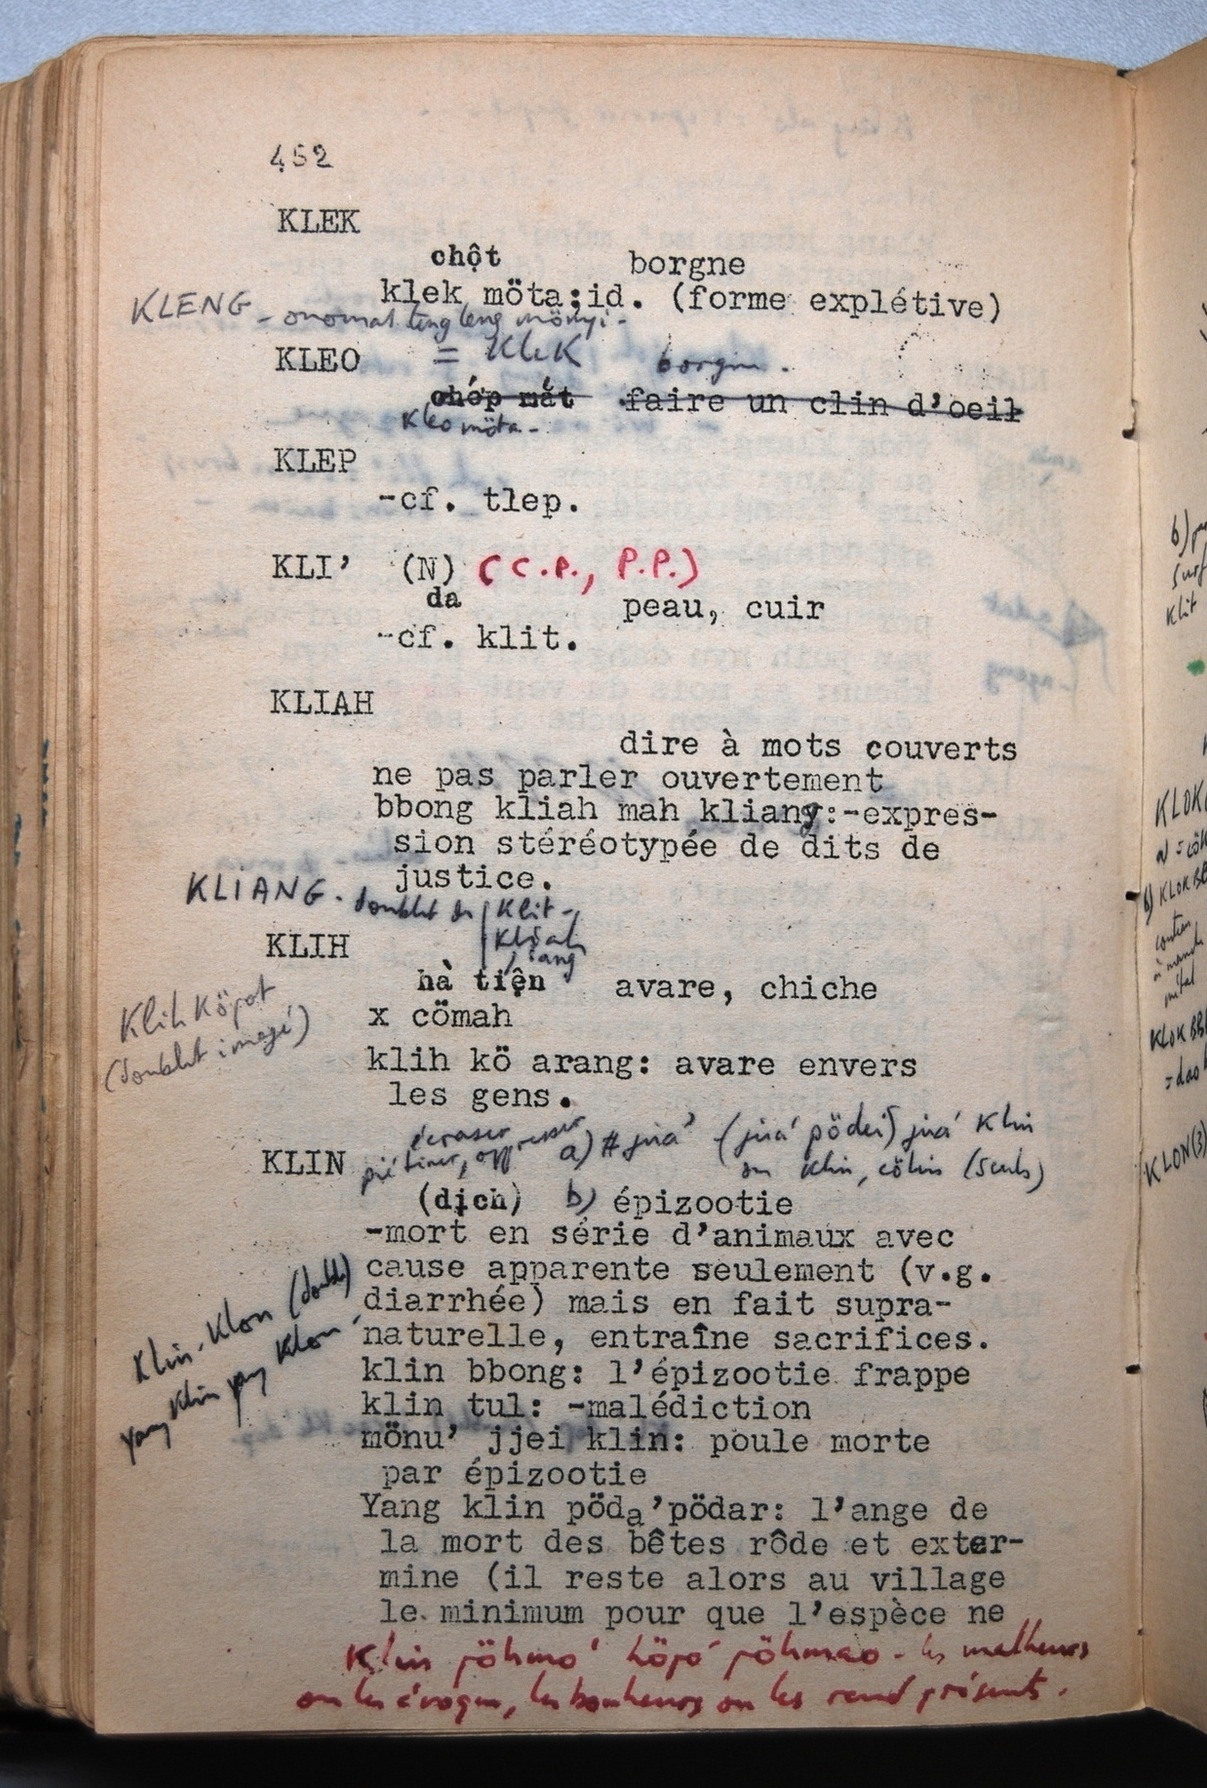 452
KLEK
chột borgne
klek möta:id. (forme explétive)
KLENG - onomat leng leng mönyi-
KLEO = KleK borgne.
chóp mắt faire un clin d'oeil
Kleo möta-
KLEP
-cf. tlep.
KLI' (N) (C.P., P.P.)
da peau, cuir
-cf. klit.
KLIAH
dire à mots couverts
ne pas parler ouvertement
bbong kliah mah kliang:-expres-
sion stéréotypée de dits de
justice.
KLIANG. doublet de Klit-
Kliah
KLIH
jiang
hà tiện avare, chiche
x cömah
Klih Köpot
(doublet imagé)
klih kö arang: avare envers
les gens.
écraser
KLIN piétiner, oppresser a) # jira' (jira' pödei) jira' Klin
ou Klin, cölin
(dịch) b) épizootie
-mort en série d'animaux avec
cause apparente seulement (v.g.
diarrhée) mais en fait supra-
naturelle, entraîne sacrifices.
Klin-Klon
Yang Klin yang Klon-
klin bbong: l'épizootie frappe
klin tul: -malédiction
mönu' jjei klin: poule morte
par épizootie
Yang klin pöda'pödar: l'ange de
la mort des bêtes rôde et exter-
mine (il reste alors au village
le minimum pour que l'espèce ne
Klin pöhmo' pöhmao - les malheurs
on les évoque, les bonheurs on les rend présents.
b)
Klit
KLOK
KLOK BB
KLOK BB
KLON(3)